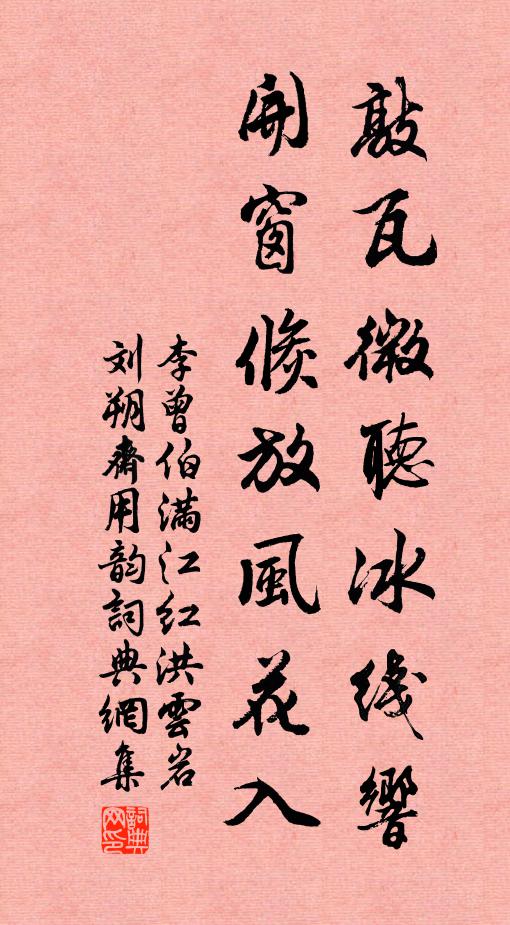 敲瓦微聽冰线響
開窗倏放風花入
李曾伯满江红洪雲岩
刘朔齋用韵詞典網集
詞典网印